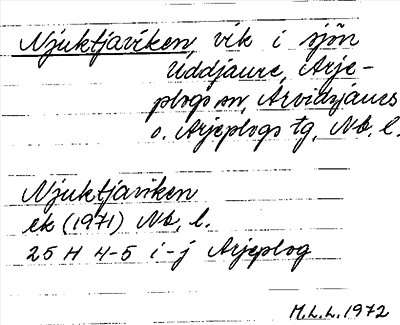 Njuktjaviken, vik i sjön
Uddjaure, Arje-
plogs sn, Arvidsjaurs
o. Arjeplogs tg, Nb. l.
Njuktjaviken
ek (1971) Nb. l.
25 H 4-5 i-j Arjeplog
M.L.L. 1972